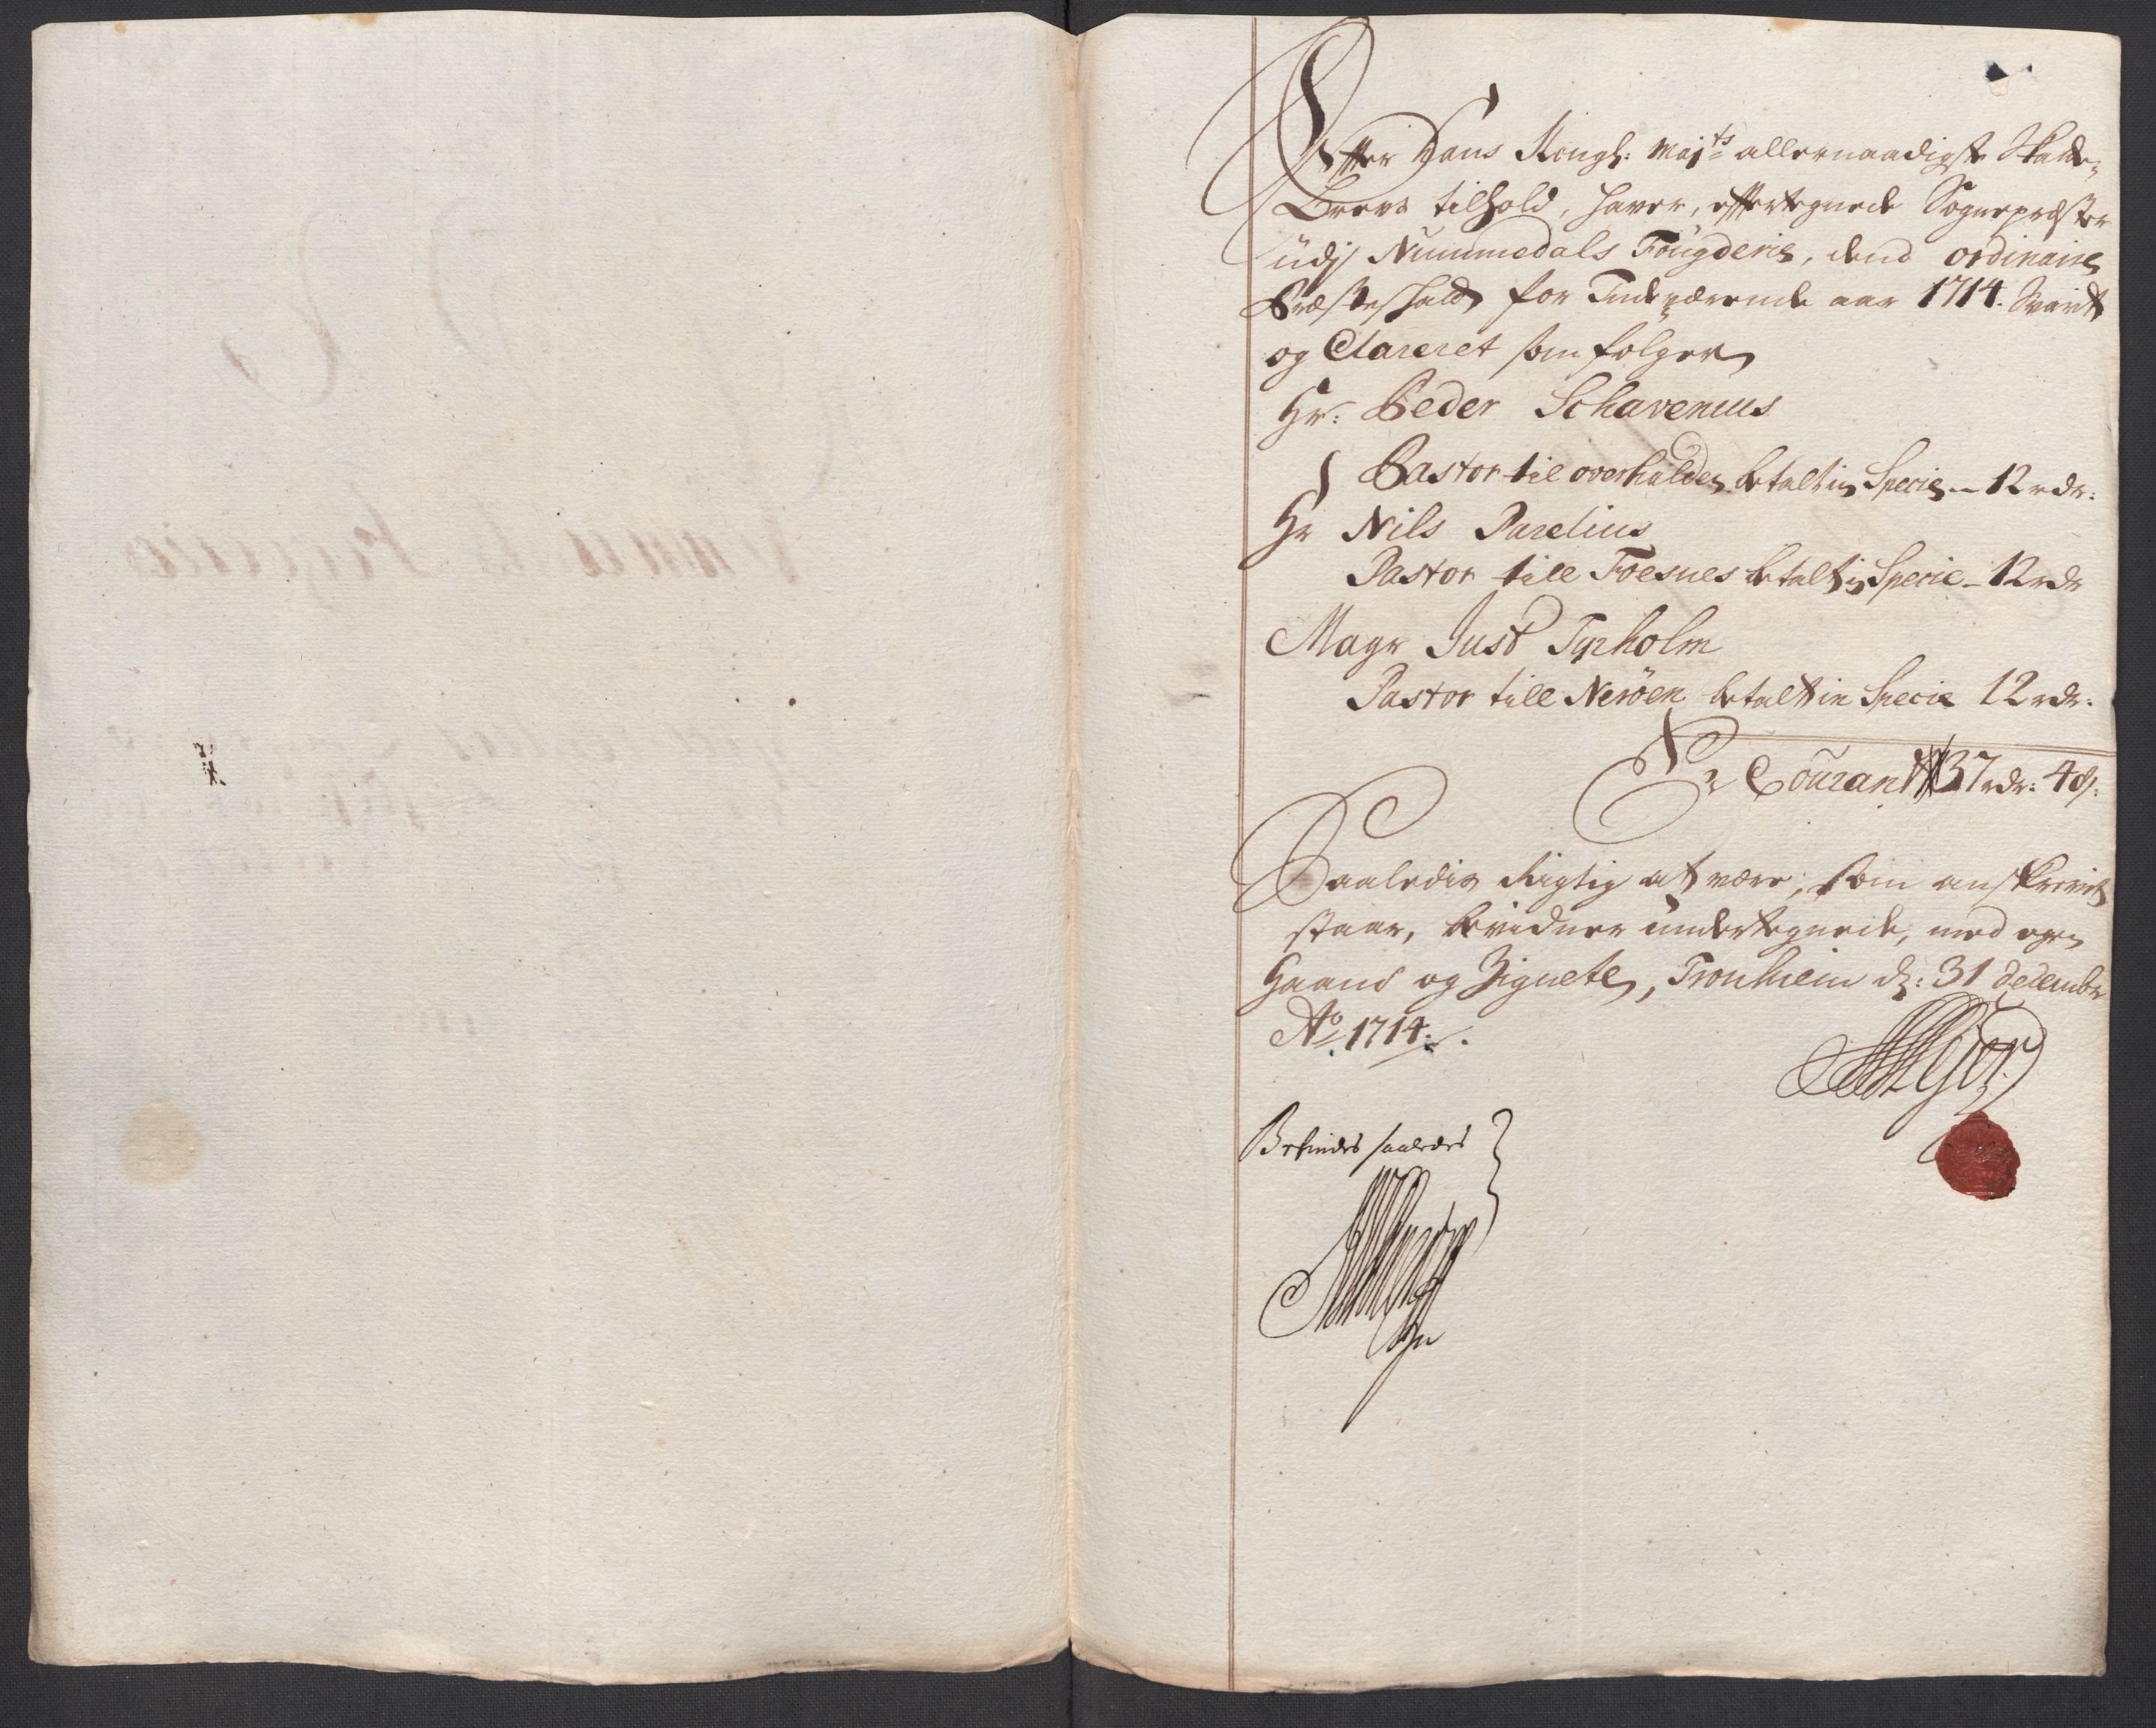 Effter Hans Kongl: Mai^ts allernaadigste Skatte-
Brevs tilhold, haver, efftertegnede Sognepræster
udj Nummedals Fougderie, dend ordinaire
Præsteskatt for Indeværende aar 1714. Svaret
og Clareret som følger
Hr: Peder Schavenius
Pastor til overhalden betalt in Specie - 12 rdr:
Hr Nils Parelius
Pastor till Foesnes betalt in Specie - 12 rdr
Magr Just Tyrholm
Pastor till Nerøen betalt in Specie 12 rdr:
Er Courant 37 rdr: 48:
Saaledis Rigtig at være, som anskrevet
staar, bevidner undertegnede, med egen
Haand og Zignete, Tronhiem d: 31 decembr
A^o 1714.
Befindes saaledes